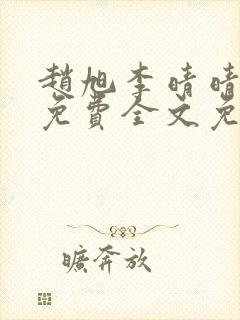 趙旭李晴晴
免費全文免
曠奔放